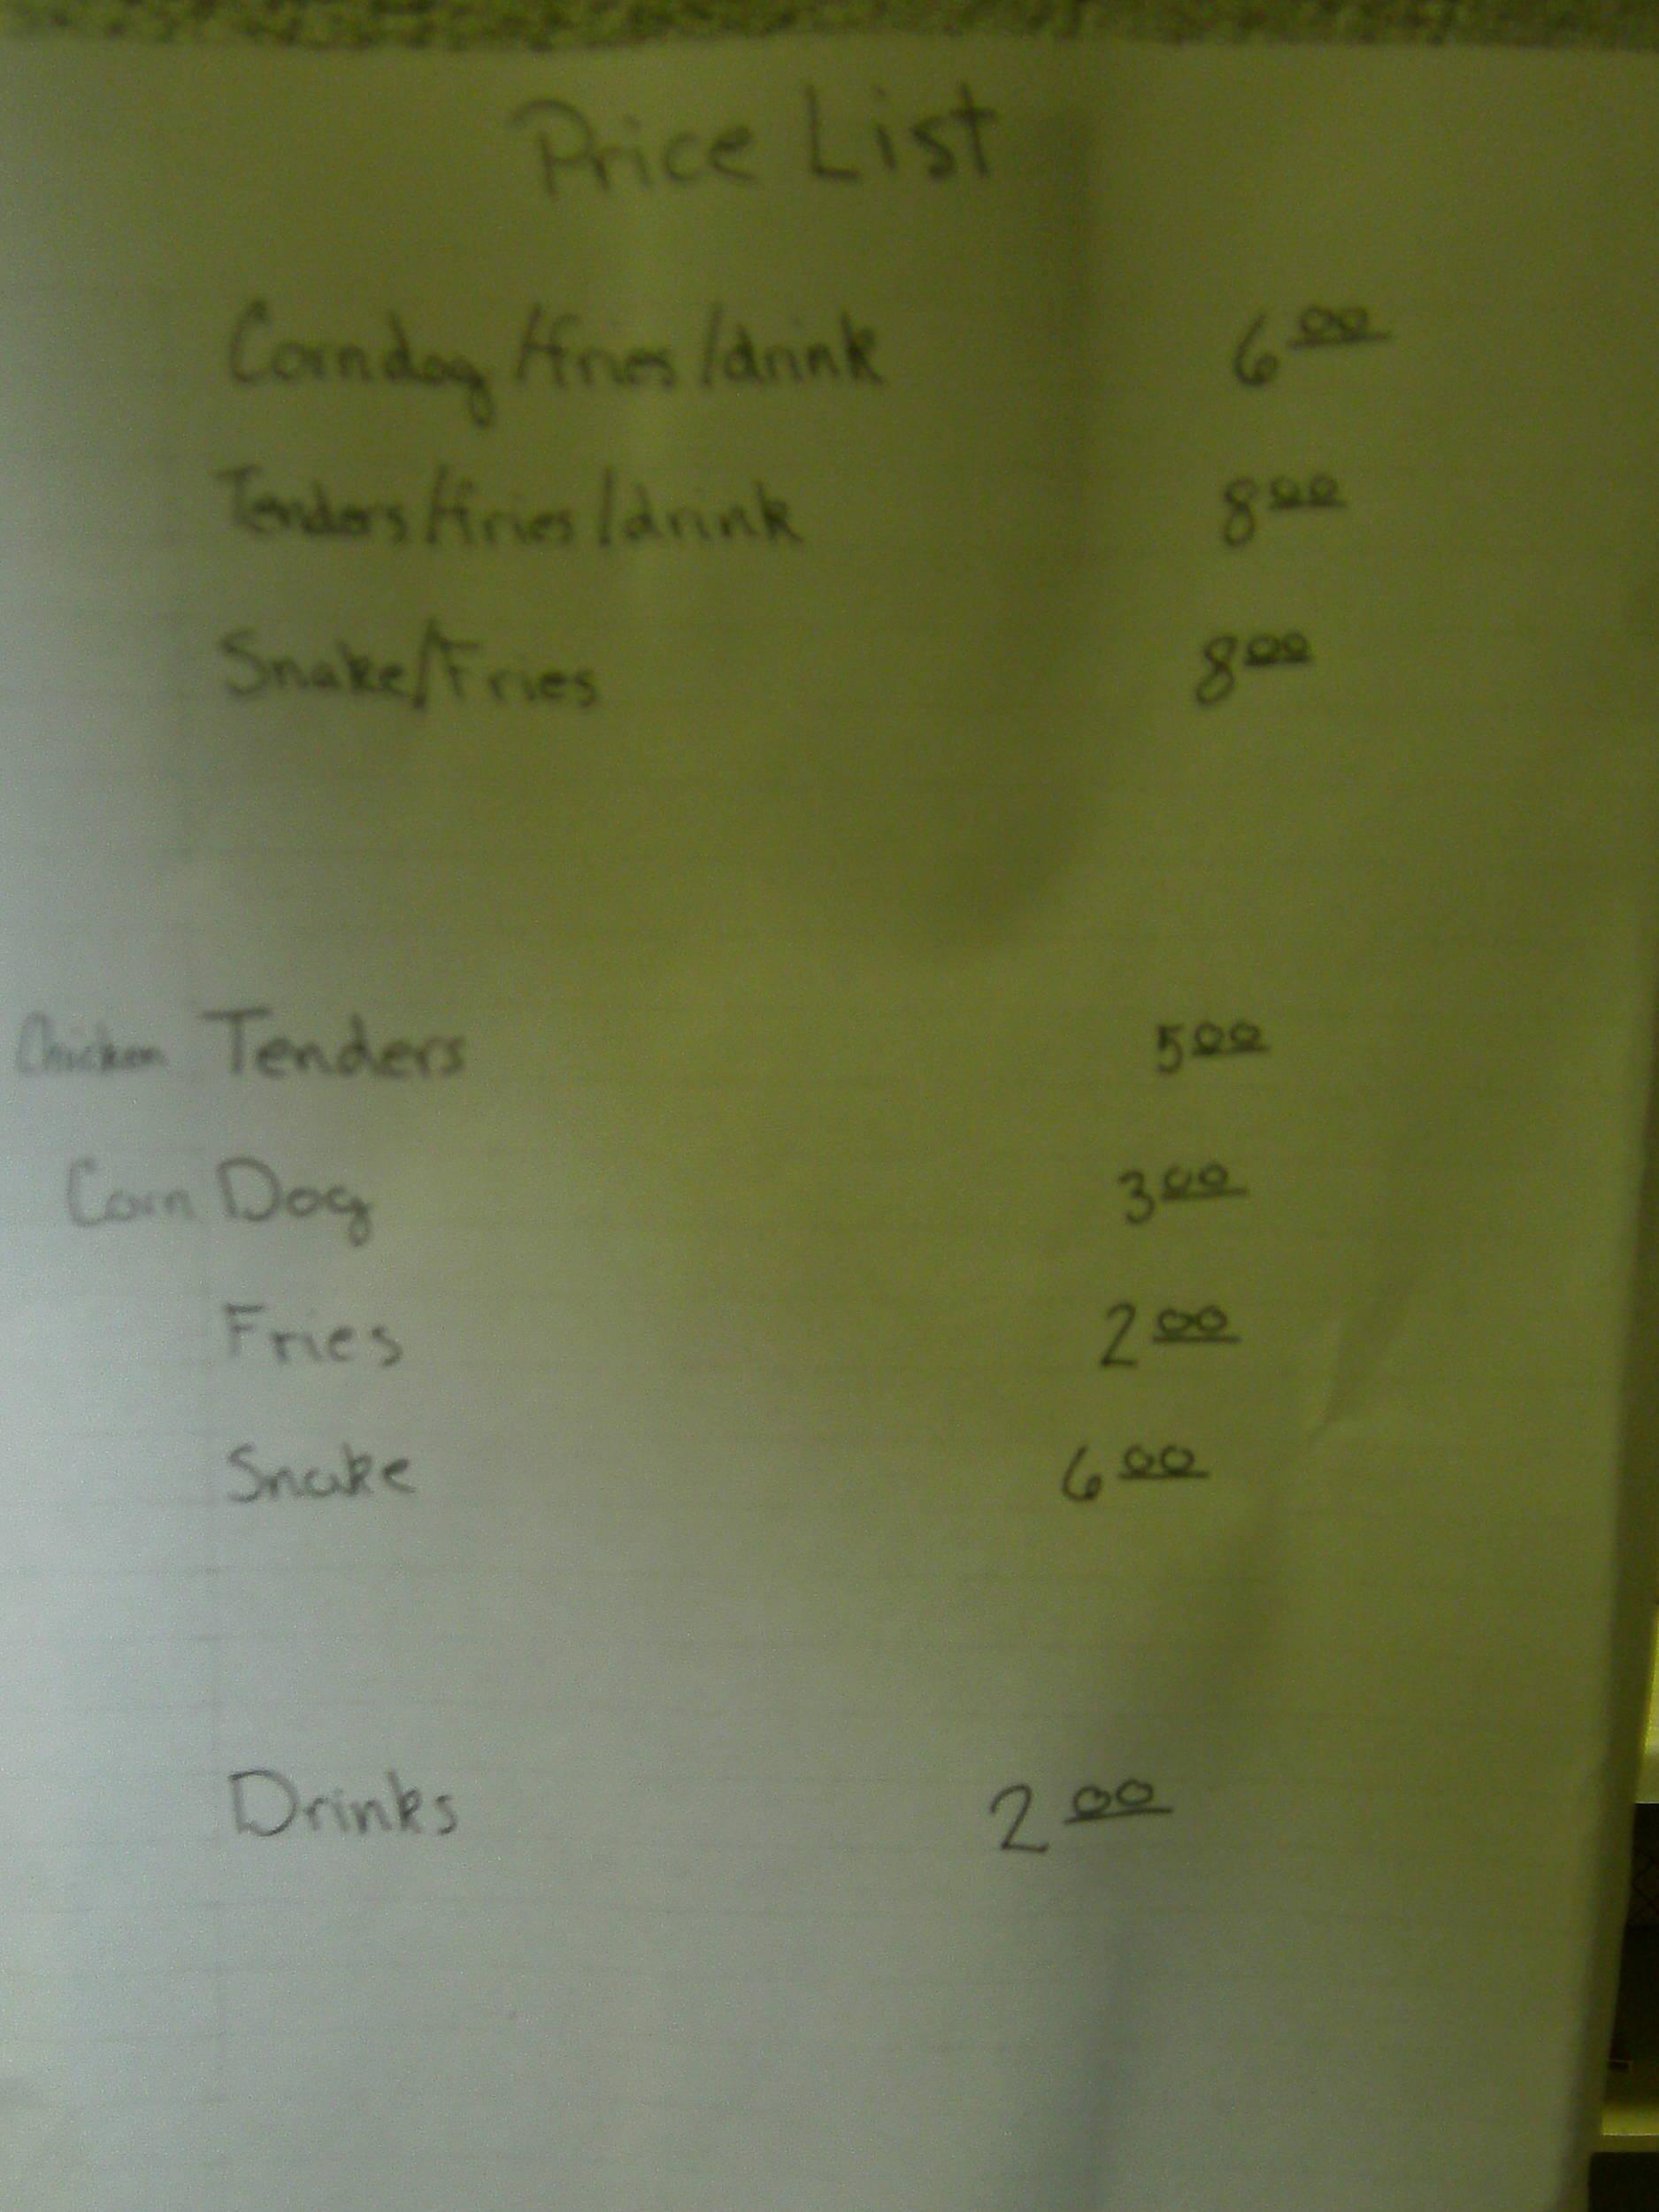 Price List
Corndog/fries/drink 6 00
Tenders/fries/drink 8 00
Snake/Fries 8 00
Chicken Tenders 5 00
Corn Dog 3 00
Fries 2 00
Snake 6 00
Drinks 2 00